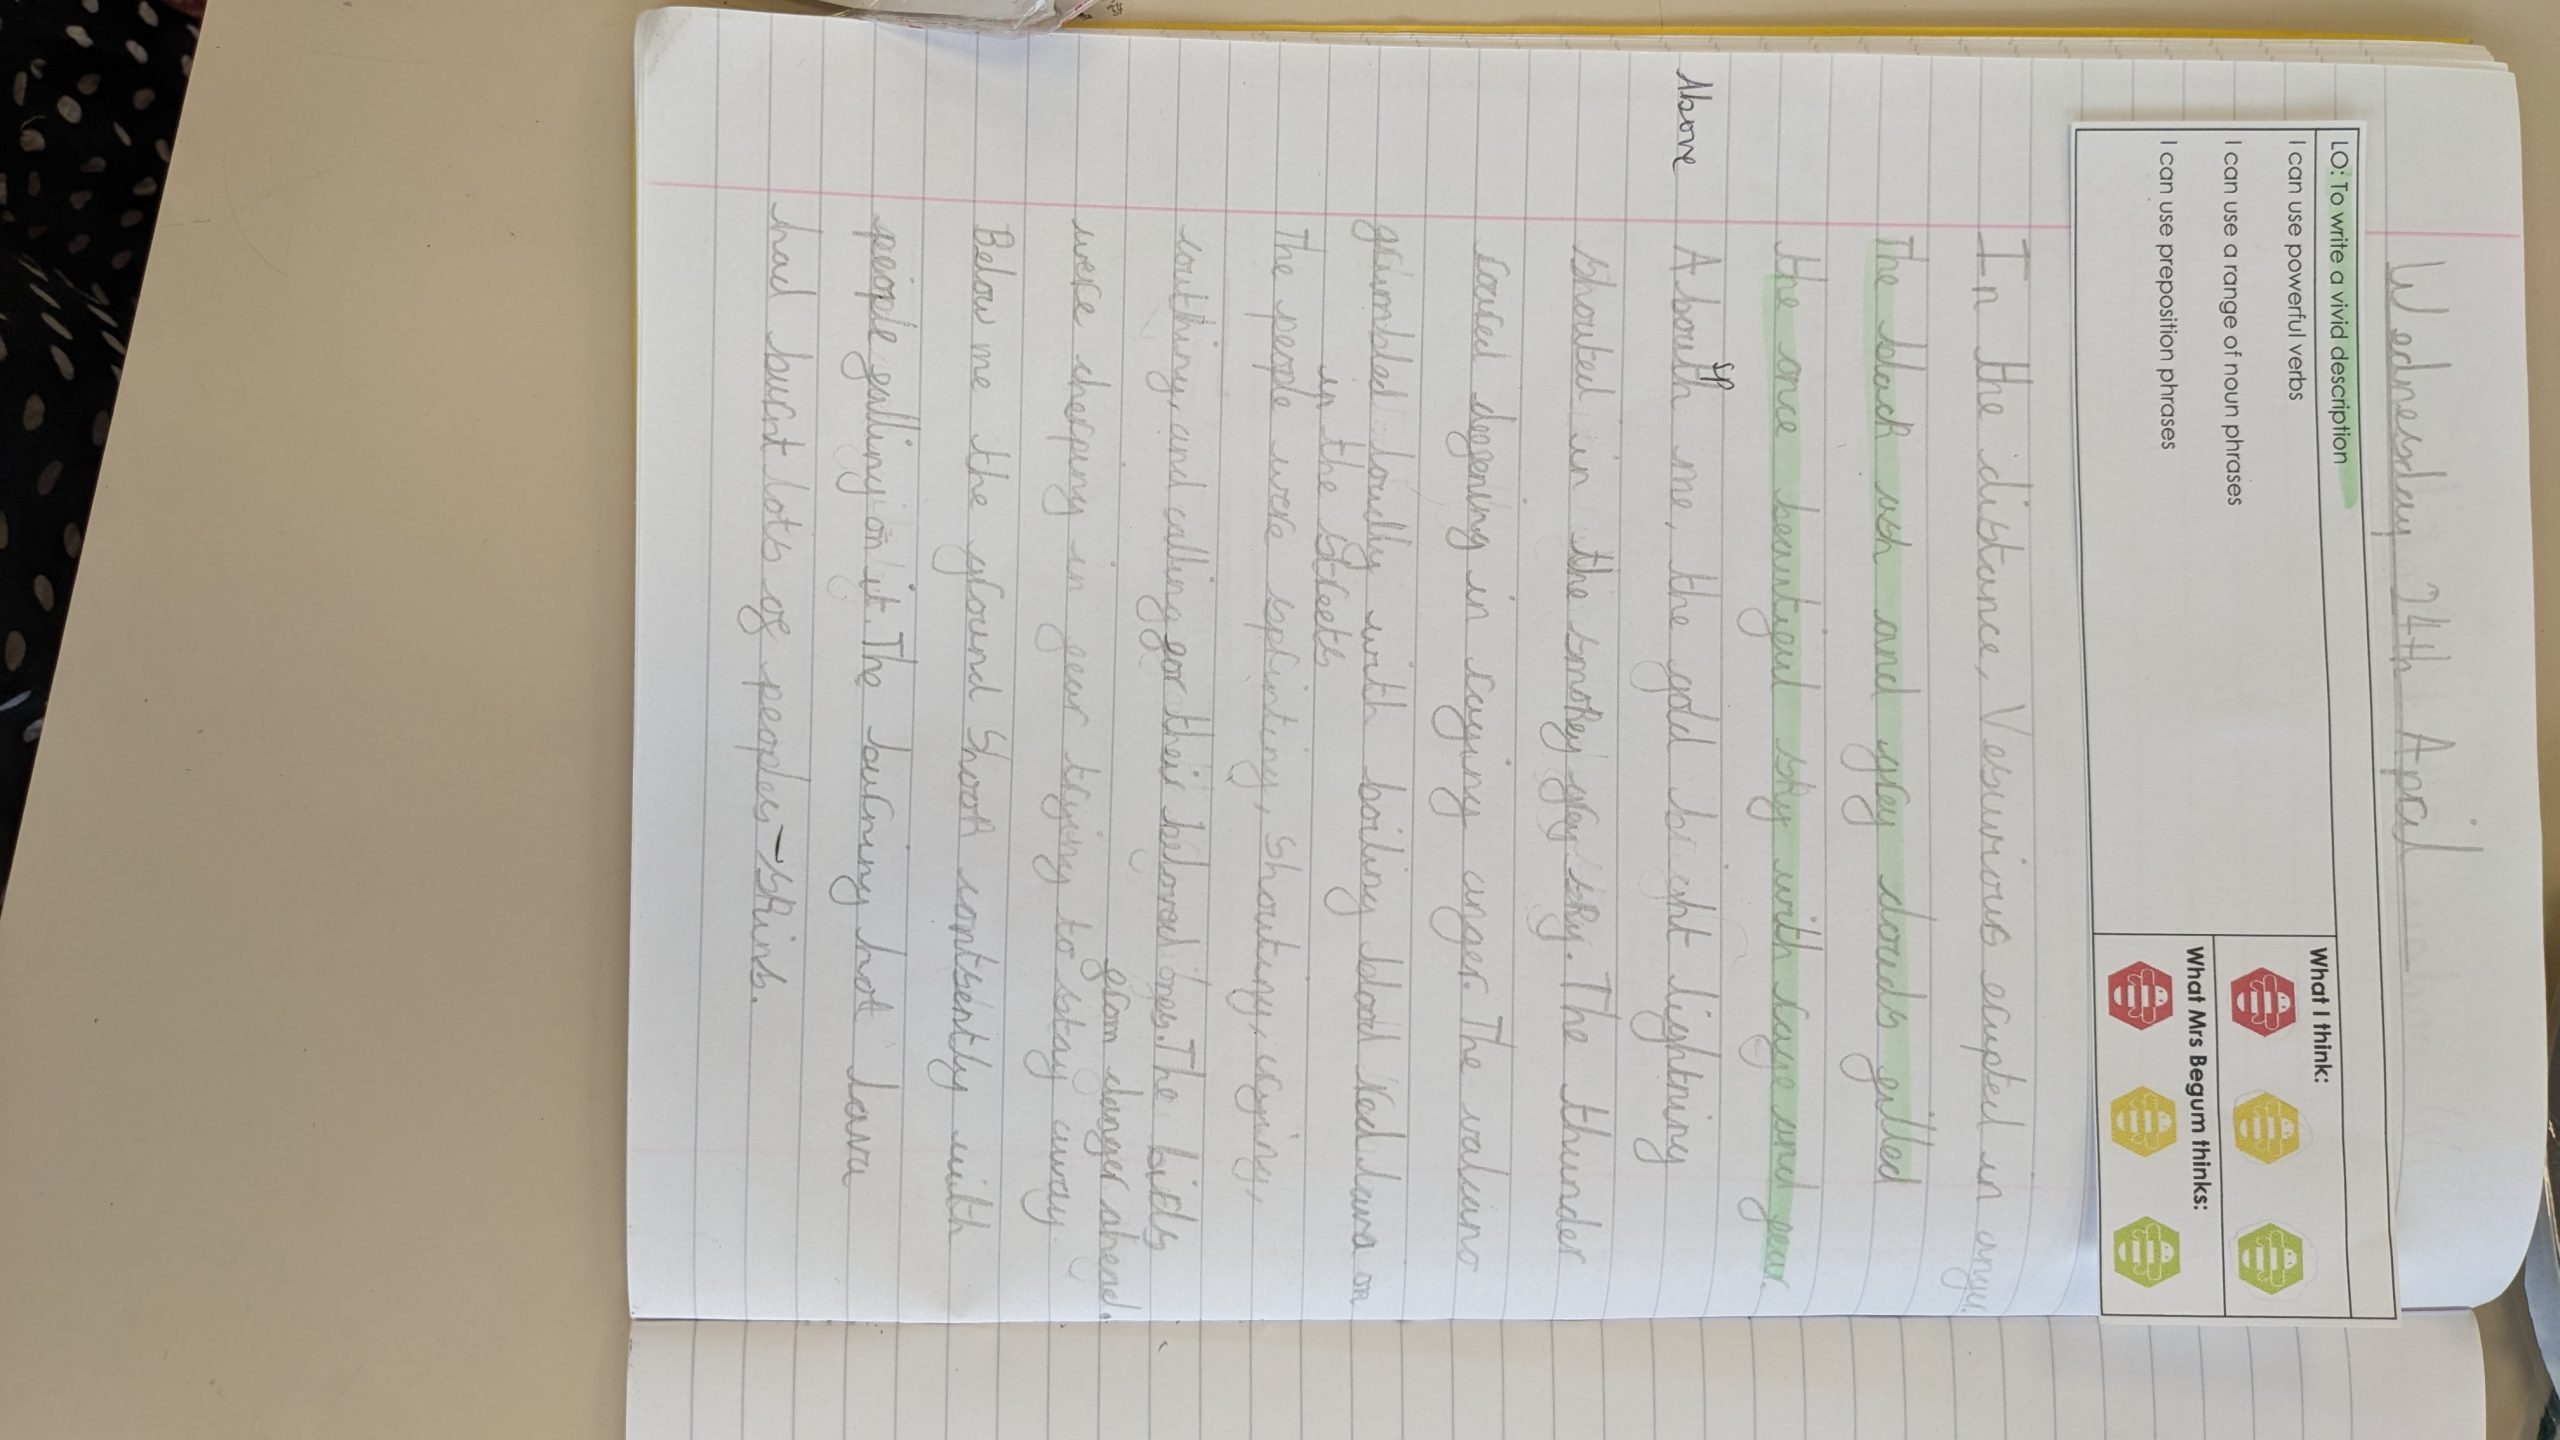 Wednesday 24th April
LO: To write a vivid description
I can use powerful verbs
I can use a range of noun phrases
I can use preposition phrases
What I think:
What Mrs Begum thinks:
In the distance, Vesuvious erupted in anger.
The black ash and grey clouds filled
the once beautiful sky with rage and fear.
Above
sp
Abouth me, the gold bright lightning
shouted in the smokey grey sky. The thunder
roared defening in raging anger. The valcano
grumbled loudly with boiling blood Red lava on
in the streets
The people were sprinting, shouting, crying,
couthing, and calling for their beloved ones. The birds
were cherping in fear trying to stay away
from danger ahead.
Below me the ground shook contsently with
people falling on it. The burning hot lava
had burnt lots of peoples skins.